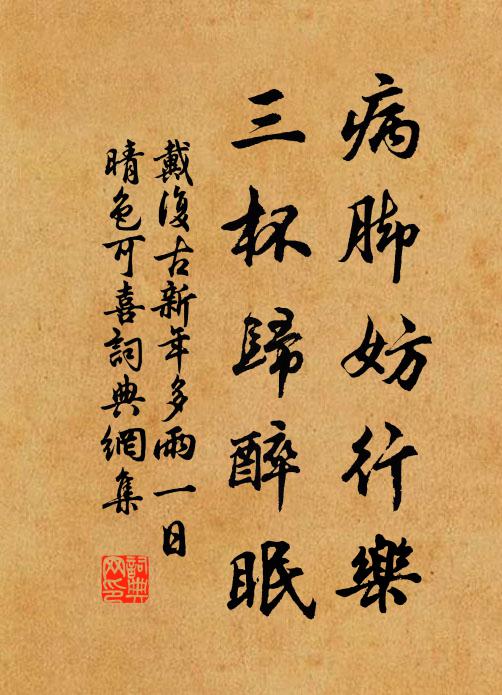 病脚妨行樂
三杯歸醉眠
戴復古新年多雨一日
晴色可喜詞典網集
詞典
网印